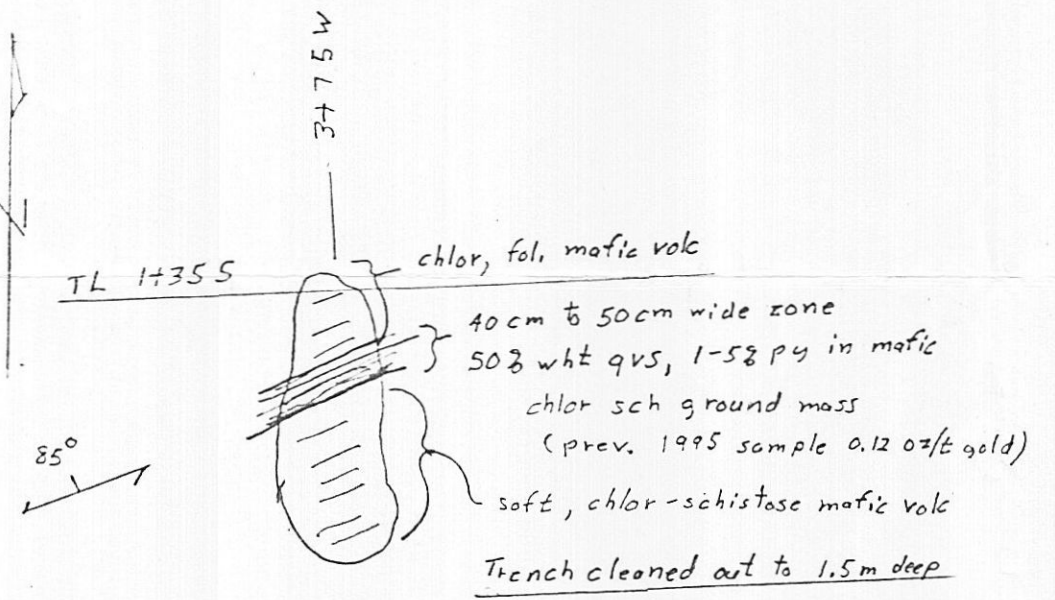 3+75W
chlor, fol. mafic volc
TL 1+35S
40cm to 50cm wide zone
50% wht qvs, 1-5% py in mafic
chlor sch ground mass
(prev. 1995 sample 0.12 oz/t gold)
85°
soft, chlor-schistose mafic volc
Trench cleaned out to 1.5m deep